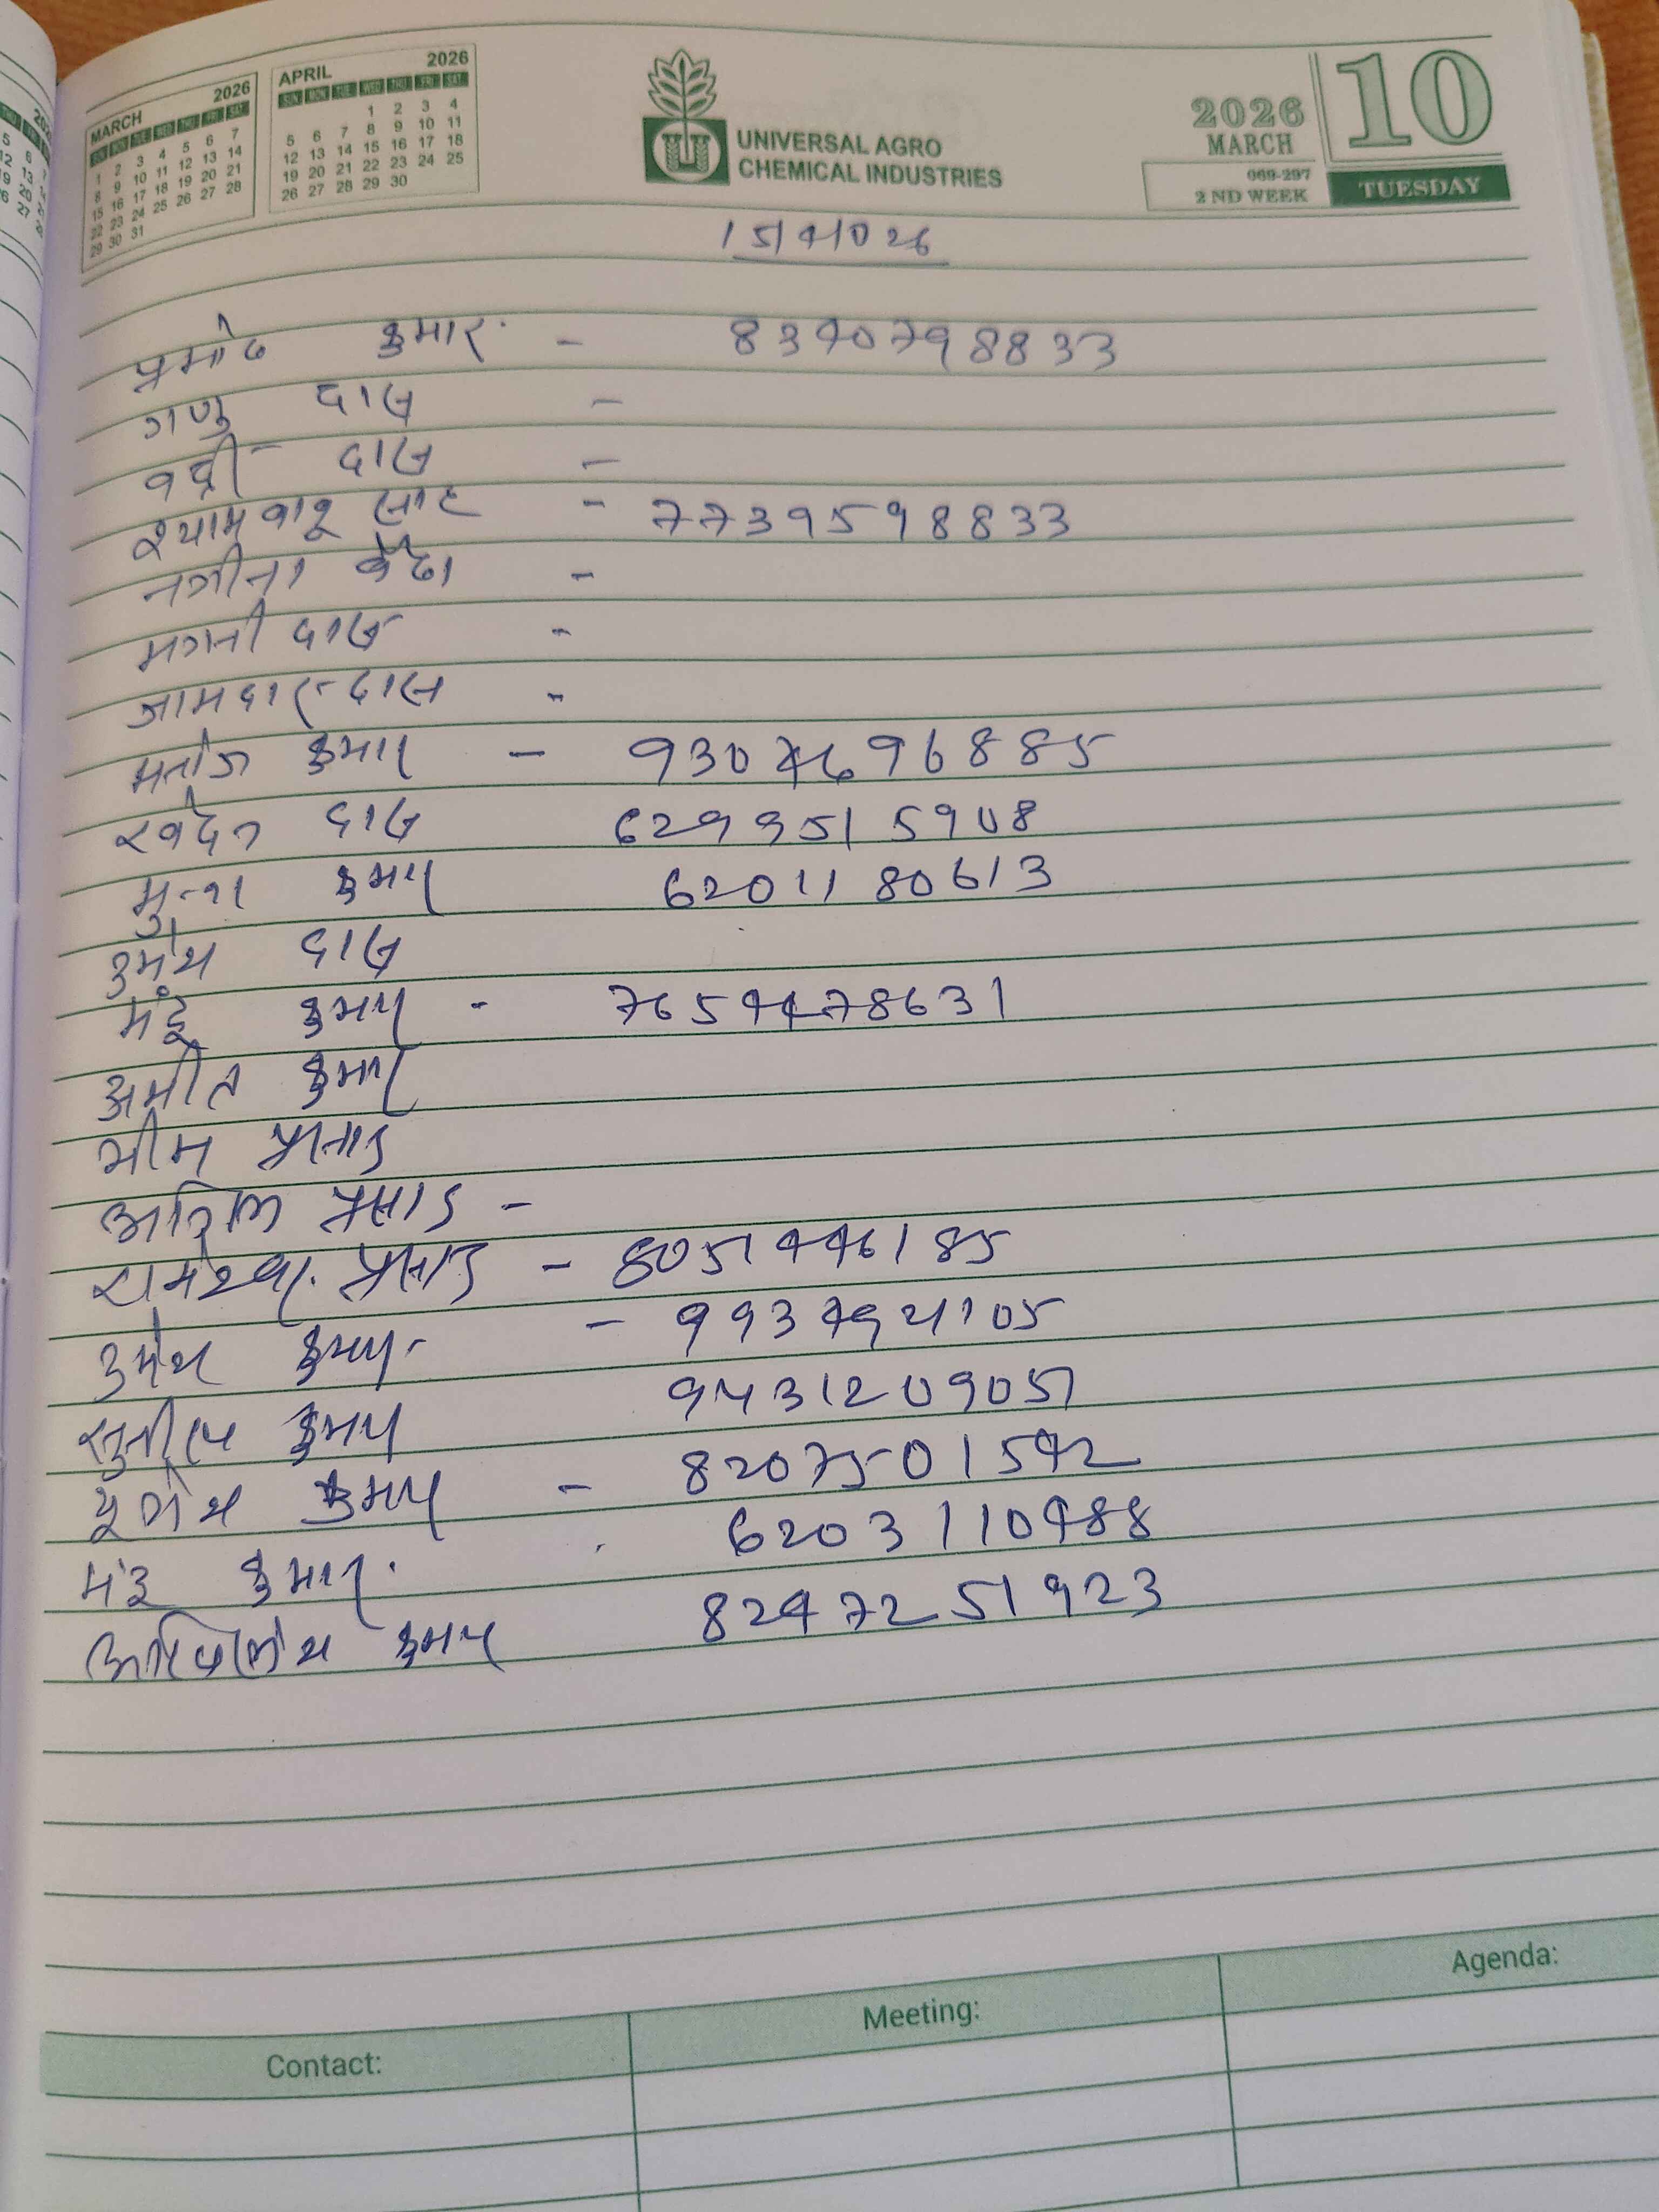 MARCH 2026
SUN MON TUE WED THU FRI SAT
1 2 3 4 5 6 7
8 9 10 11 12 13 14
15 16 17 18 19 20 21
22 23 24 25 26 27 28
29 30 31
APRIL 2026
SUN MON TUE WED THU FRI SAT
1 2 3 4
5 6 7 8 9 10 11
12 13 14 15 16 17 18
19 20 21 22 23 24 25
26 27 28 29 30
UNIVERSAL AGRO
CHEMICAL INDUSTRIES
2026
MARCH
069-297
2 ND WEEK
10
TUESDAY
प्रमोद कुमार - 8340798833
दास -
दास -
श्यामबाबू साह - 7739598833
नगीना -
मगनी दास -
जामदार दास -
मनोज कुमार -
दास 6299515908
मुन्ना कुमार 6201180613
उमेश दास
कुमार - 7654478631
अमीत कुमार
भीम प्रसाद
प्रसाद -
रामेश्वर प्रसाद - 8051446185
उमेश कुमार -
कुमार 9431209051
कुमार - 8207501542
कुमार 6203110488
कुमार 8247251923
Contact:
Meeting:
Agenda: